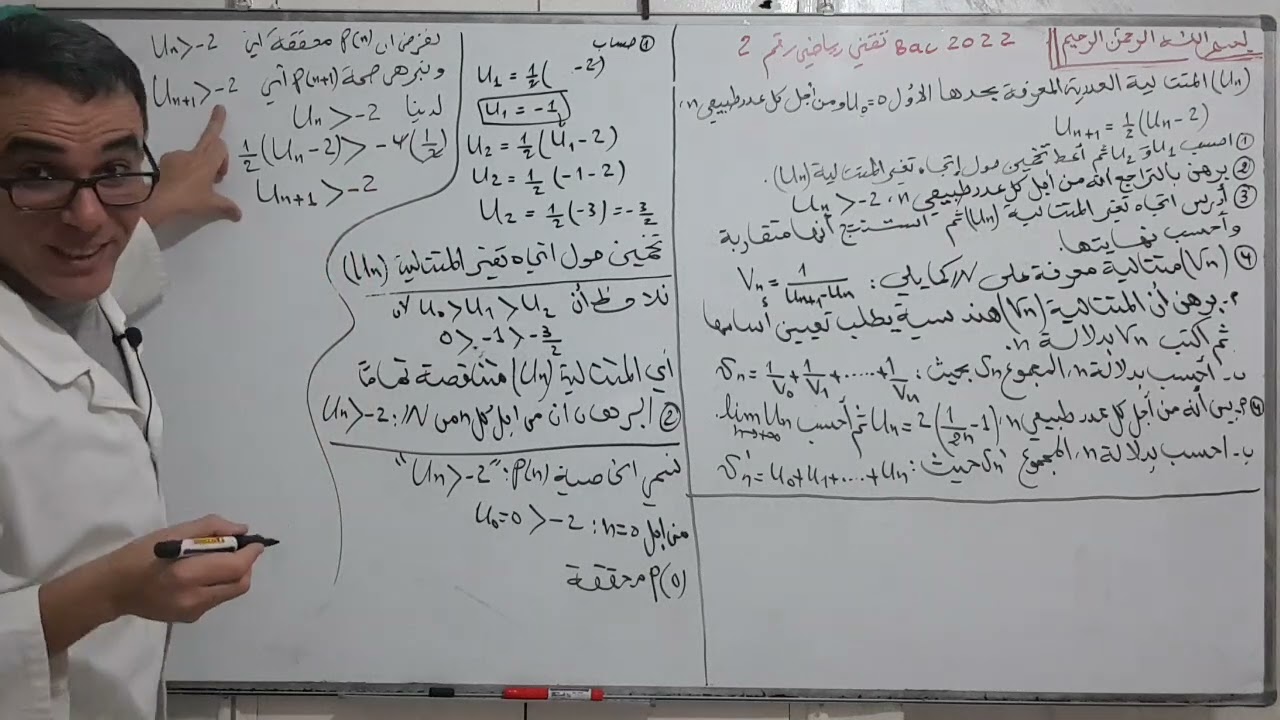 بسم الله الرحمن الرحيم Bac 2022 تقني رياضي رقم 2
(Un) المتتالية العددية المعرفة بحدها الأول U0=0 ومن أجل كل عدد طبيعي n،
Un+1 = 1/2 (Un-2)
① احسب U1 و U2 ثم أعط تخمين حول إتجاه تغير المتتالية (Un).
② برهن بالتراجع أنه من أجل كل عدد طبيعي n، Un > -2
③ أدرس اتجاه تغير المتتالية (Un) ثم استنتج أنها متقاربة
وأحسب نهايتها.
④ (Vn) متتالية معرفة على N كما يلي: Vn = 1/(Un+1-Un)
أ- برهن أن المتتالية (Vn) هندسية يطلب تعيين أساسها
ثم أكتب Vn بدلالة n.
ب- أحسب بدلالة n، المجموع Sn بحيث: Sn = 1/V0 + 1/V1 + ..... + 1/Vn
بين أنه من أجل كل عدد طبيعي n، Un = 2(1/2n - 1) ثم أحسب lim Un n→+∞
ب- احسب بدلالة n، المجموع S'n حيث: S'n = U0+U1+....+Un
① حساب
U1 = 1/2 ( -2)
U1 = -1
U2 = 1/2 (U1-2)
U2 = 1/2 (-1-2)
U2 = 1/2 (-3) = -3/2
تخمين حول اتجاه تغير المتتالية (Un)
نلاحظ أن U0 > U1 > U2 لأن
0 > -1 > -3/2
أي المتتالية (Un) متناقصة تماما
② البرهان أن من أجل كل n من N: Un > -2
نسمي الخاصية P(n): "Un > -2"
من أجل n=0: U0=0 > -2
P(0) محققة
نفرض أن P(n) محققة أي Un > -2
ونبرهن صحة P(n+1) أي Un+1 > -2
لدينا Un > -2
1/2 (Un-2) > -4 (1/2)
Un+1 > -2